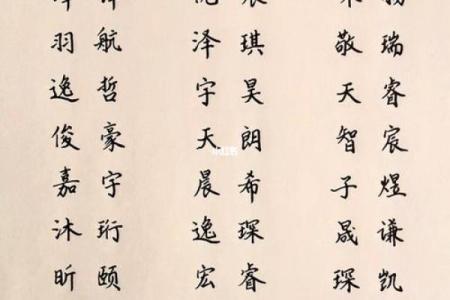 羽航 泽琪 敬瑞
逸哲 宇昊 天睿
俊豪 天朗 智宸
嘉宇 晨希 子煜
沐珩 逸琛 晟谦
昕颐 宏睿 琛凯